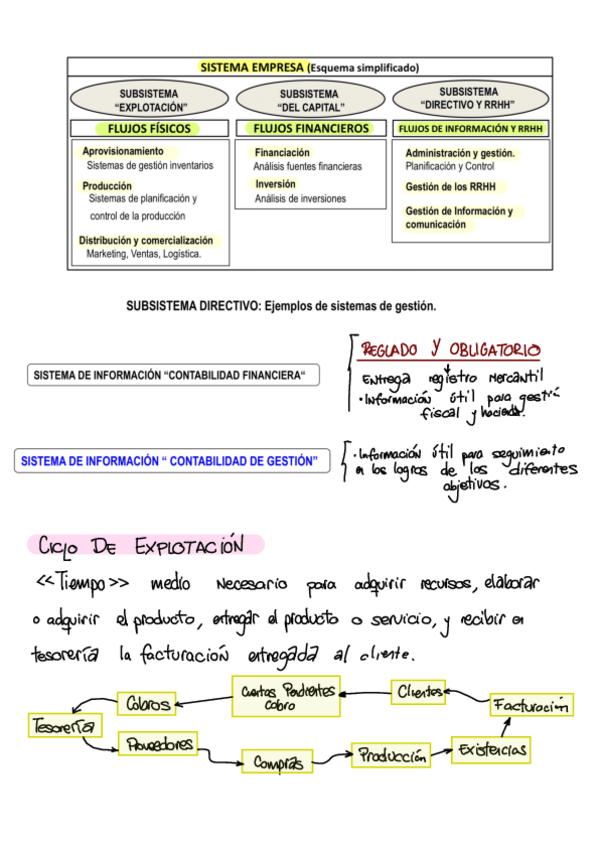 SISTEMA EMPRESA (Esquema simplificado)
SUBSISTEMA
“EXPLOTACIÓN”
FLUJOS FÍSICOS
Aprovisionamiento
Sistemas de gestión inventarios
Producción
Sistemas de planificación y
control de la producción
Distribución y comercialización
Marketing, Ventas, Logística.
SUBSISTEMA
“DEL CAPITAL”
FLUJOS FINANCIEROS
Financiación
Análisis fuentes financieras
Inversión
Análisis de inversiones
SUBSISTEMA
“DIRECTIVO Y RRHH”
FLUJOS DE INFORMACIÓN Y RRHH
Administración y gestión.
Planificación y Control
Gestión de los RRHH
Gestión de Información y
comunicación
SUBSISTEMA DIRECTIVO: Ejemplos de sistemas de gestión.
SISTEMA DE INFORMACIÓN “CONTABILIDAD FINANCIERA“
REGLADO Y OBLIGATORIO
Entrega registro Mercantil
· Información útil para gestión
fiscal y hacienda.
SISTEMA DE INFORMACIÓN “ CONTABILIDAD DE GESTIÓN”
· Información útil para seguimiento
en los logros de los diferentes
objetivos.
CICLO DE EXPLOTACIÓN
<<Tiempo>> medio necesario para adquirir recursos, elaborar
o adquirir el producto, entregar el producto o servicio, y recibir en
tesorería la facturación entregada al cliente.
Tesorería
Cobros
Cuentas Pendientes
Cobro
Clientes
Facturación
Proveedores
Compras
Producción
Existencias